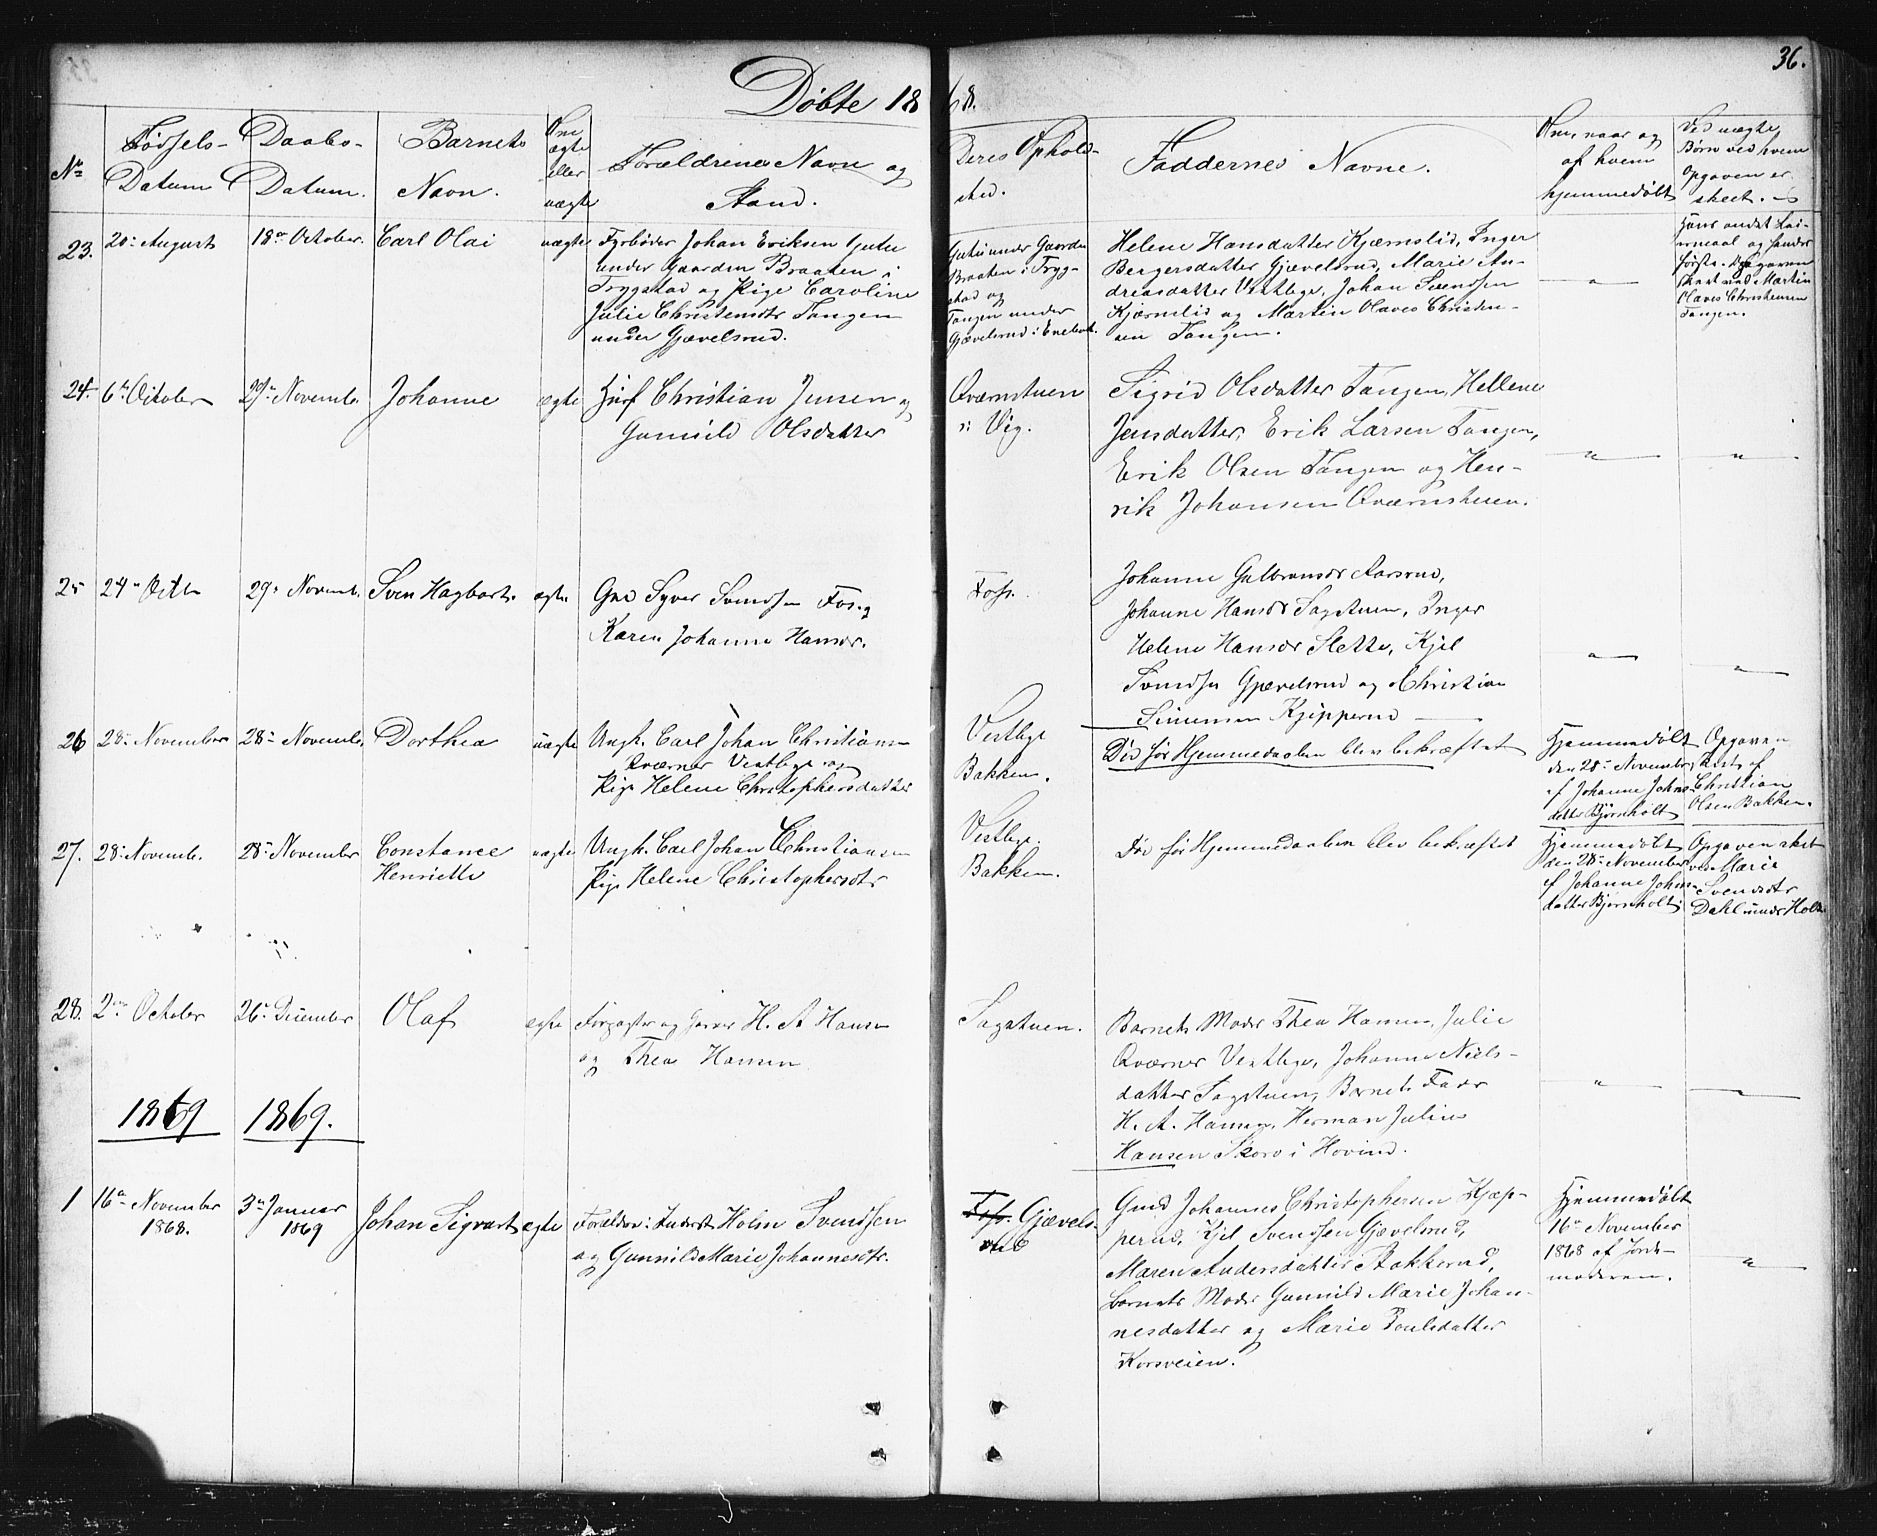 36.
Døbte 1868.
No
Fødsels-
Datum
Daabs-
Datum.
Barnets
Navn.
Om
ægte
eller
uægte
Forældrenes Navn og
Stand.
Deres Ophold-
sted.
Faddernes Navne.
Om, naar og
af hvem
hjemmedøbt
Ved uægte
Børn ved hvem
Opgaven er
skeet.
23.
20de August
18de October
Carl Olai
uægte
Fyrbøder Johan Eriksen
under Gaarden Braaten i
Trygstad og Pige Caroline
Julie Christensdtr Tangen
under Gjævelsrud.
under Gaarden
Braaten i Tryg-
stad og
Tangen under
Gjævelsrud i Enebak.
Helene Hansdatter Kjærnslid, Inger
Bergersdatter Gjævelsrud, Marie An-
dreasdatter Vestbye, Johan Svendsen
Kjærnslid og Martin Olaves Christen-
sen Tangen.
"
Hans andet Lei-
ermaal og hendes
første. Opgaven
skeet ved Martin
Olaves Christensen
Tangen.
24.
6te October
29de Novembr.
Johanne
ægte
Christian Jensen og
Gunnild Olsdatter
Qværnstuen
i Vig.
Sigrid Olsdatter Tangen, Hellene
Jensdatter, Erik Larsen Tangen,
Erik Olsen Tangen og Hen-
rik Johansen Qværnstuen.
"
"
25
24de Octbr
29de Novemb.
Sven Hagbart.
ægte
Gmd Syver Svendsen Fos og
Karen Johanne Hansdr.
Foss.
Johanne Gulbransdr Aarsrud,
Johanne Hansdr Sagstuen, Inger
Helene Hansdr Slette, Kjel
Svendsen Gjævelsrud og Christian
Simensen Kjipperud
"
"
26
28de November
28de Novemb.
Dorthea
uægte
Ungk. Carl Johan Christiansen
Qværner Vestbye og
Pige Helene Christophersdatter
Vestbye
Bakken.
Død før Hjemmedaaben blev bekræftet
Hjemmedøbt
den 28de November
af Johanne Johns-
datter Bjørnholt
Opgaven
skeet af
Christian
Olsen Bakken.
27.
28de Novemb.
28de November
Constance
Henriette
uægte
Ungk. Carl Johan Christiansen
Pige Helene Christophersdtr
Vestbye.
Bakken.
Død før Hjemmedaaben blev bekræftet
Hjemmedøbt
den 28de November
af Johanne Johns-
datter Bjørnholt
Opgaven skeet
ved Marie
Svensdtr
Dahl under Holt
28.
2den October
26de December
Olaf
ægte
Forpagter og Garver H. A Hansen
og Thea Hansen
Sagstuen.
Barnets Moder Thea Hansen, Julie
Qværner Vestbye, Johanne Niels-
datter Sagstuen, Barnets Fader
H. A. Hansen, Herman Julius
Hansen Skoro i Hovind.
"
"
1869
1869.
1
16de November
1868.
3de Januar
1869
Johan Sigvart
ægte
Forældre: Inderst Holm Svendsen
og Gunnild Marie Johannesdtr.
Foss. Gjævels-
rud
Gmd Johannes Christophersen Kjæp-
perud, Kjel Svendsen Gjævelsrud,
Maren Andersdatter Stakkerud,
barnets Moder Gunnild Marie Johan-
nesdatter og Marie Poulsdatter
Korsveien.
Hjemmedøbt
16de November
1868 af Jorde-
moderen.
"